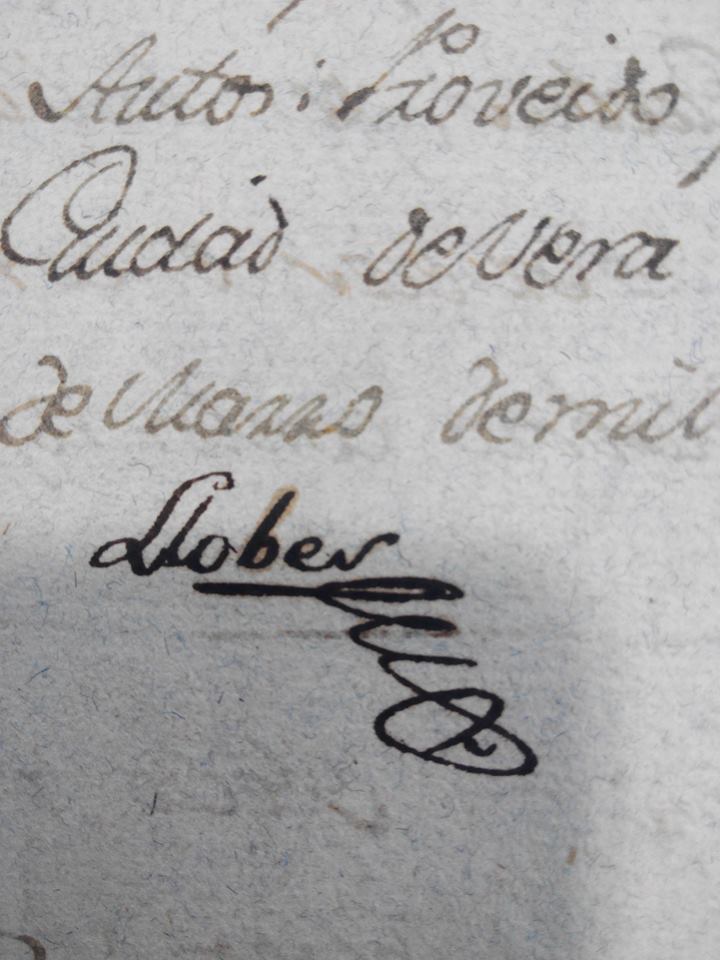 Autos: Proveido
Ciudad de Vera
de Marzo de mil
Llober